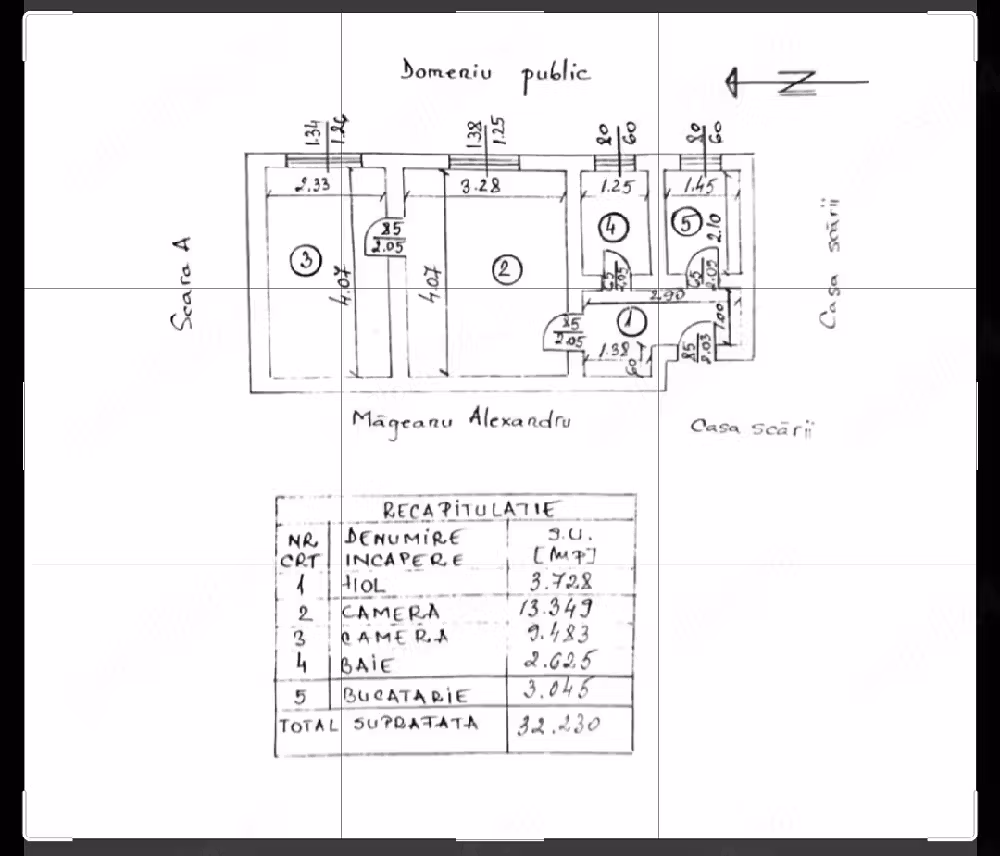 Domeniu public
N
1.34 1.26
1.38 1.25
80 60
80 60
2.33
3.28
1.25
1.45
85 2.05
4
5
2.10
3
2
4.07
4.07
65 2.05
65 2.05
2.90
1
1.00
85 2.05
1.38
60
85 2.03
Scara A
Casa scării
Măgeanu Alexandru
Casa scării
RECAPITULATIE
NR CRT DENUMIRE INCAPERE S.U. [MP]
1 HOL 3.728
2 CAMERA 13.349
3 CAMERA 9.483
4 BAIE 2.625
5 BUCATARIE 3.045
TOTAL SUPRAFATA 32.230